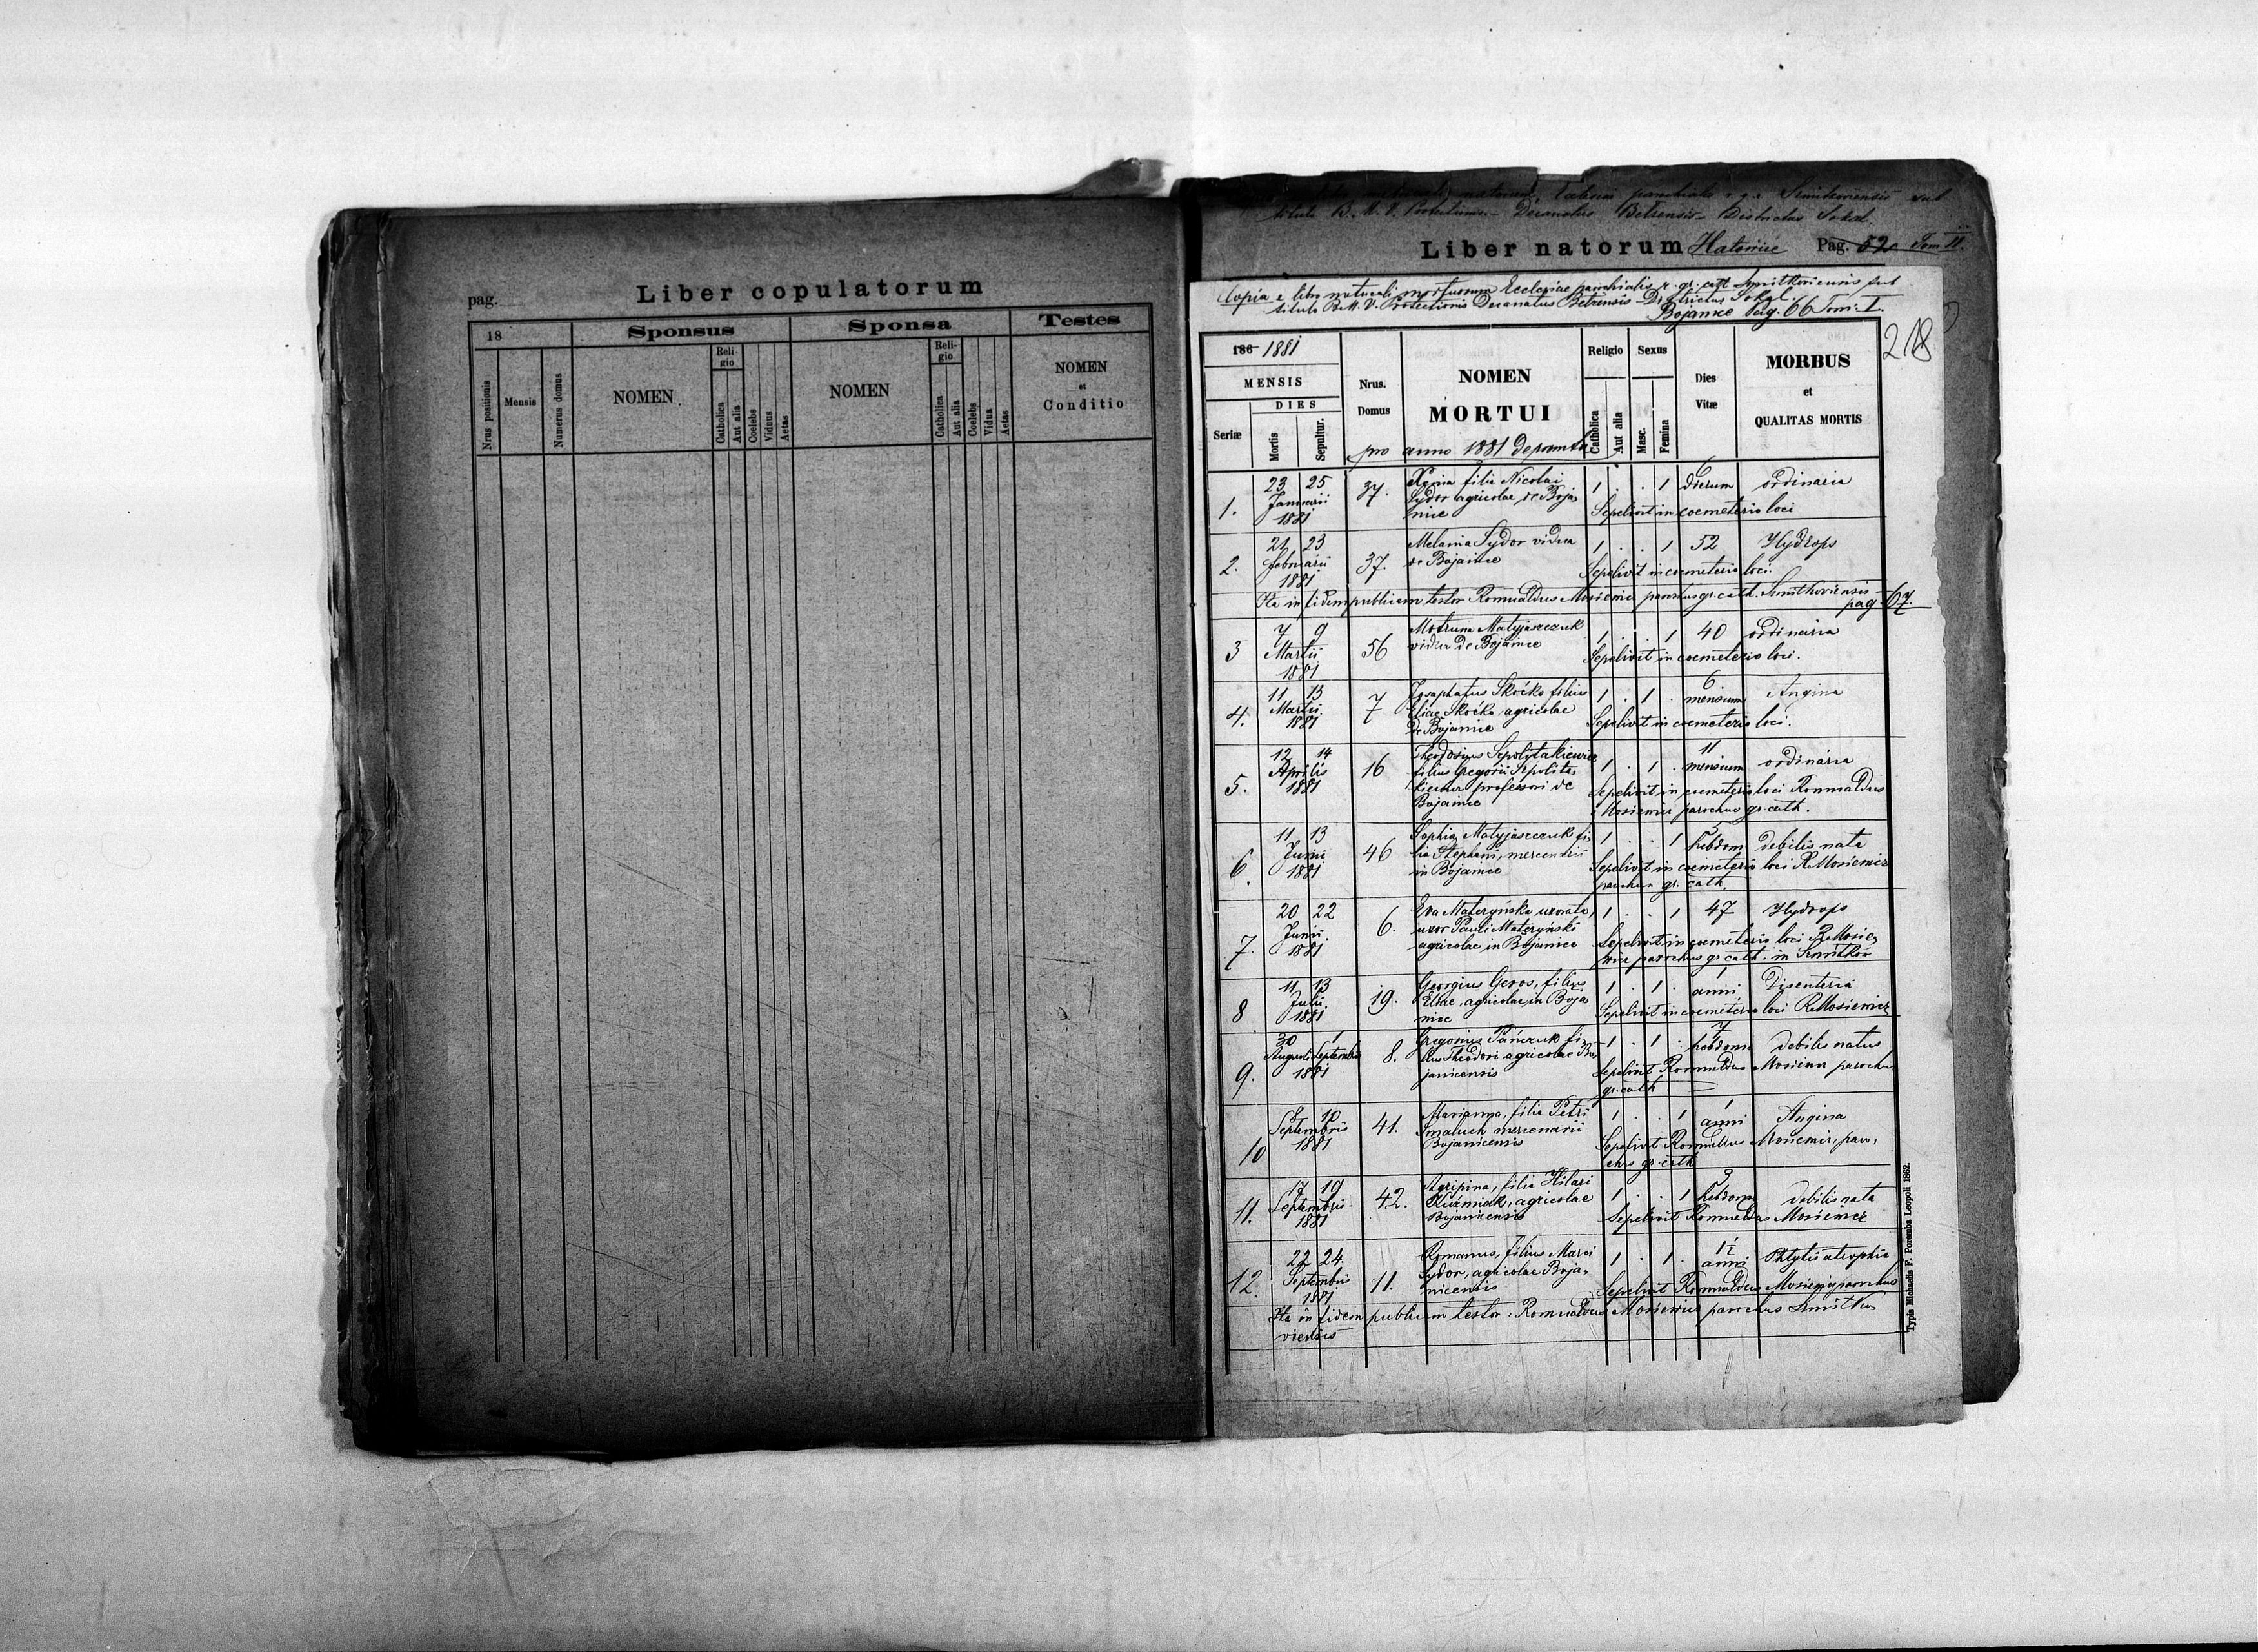 pag.
Liber copulatorum
18
Sponsus
Sponsa
Testes
Nrus positionis
Mensis
Numerus domus
NOMEN
Religio
Catholica
Aut alia
Coelebs
Viduus
Aetas
NOMEN
Religio
Catholica
Aut alia
Coelebs
Vidua
Aetas
NOMEN
et
Conditio
titulo B. M. V. Protectionis Decanatus Belzensis Districtus Sokal.
Liber natorum Hatowice Pag. 52 Tom II.
Copia e libro naturali mortuorum Ecclesiae parochialis r. gr. catt Smithoviensis sub
titulo B. M. V. Protectionis Decanatus Belzensis Districtus Sokal.
Bojanice Pag. 66 Tom: I.
218
186 1881
MENSIS
DIES
Seriæ
Mortis
Sepultur.
Nrus.
Domus
NOMEN
MORTUI
pro anno 1881
Religio
Catholica
Aut alia
Sexus
Masc.
Femina
Dies
Vitæ
MORBUS
et
QUALITAS MORTIS
1. 23 25 Januarii 1881 37. filia Nicolai 1 . . 1 6 dierum ordinaria
Sydor agricolae de Boja
nice Sepelivit in coemeterio loci
2. 21 23 Februarii 1881 37. Melania Sydor vidua 1 . . 1 52 Hydrops
de Bojanice Sepelivit in coemeterio loci.
Ita in fidem publicam testor Romualdus Mosiewicz parochus gr. cath. Smithoviensis
pag. 67.
3 7 9 Martii 1881 56 Motruna Matyjaszczuk 1 . . 1 40 ordinaria
vidua de Bojanice Sepelivit in coemeterio loci.
4. 11 13 Martii 1881 7 Josaphatus Skočko filius 1 . 1 . 6 mensium Angina
Eliae Skočko agricolae Sepelivit in coemeterio loci.
de Bojanice
5. 12 14 Aprilis 1881 16 Theodosius 1 . 1 . 11 mensium ordinaria
filius Gregorii
professori de Sepelivit in coemeterio loci Romualdus
Bojanice Mosiewicz parochus gr. cath.
6. 11 13 Junii 1881 46 Sophia Matyjaszczuk fi 1 . . 1 5 hebdom debilis nata
lia Stephani, mercenarii Sepelivit in coemeterio loci R Mosiewicz
in Bojanice parochus gr. cath.
7. 20 22 Junii 1881 6. Eva Materyńska uxorata, 1 . . 1 47 Hydrops
uxor Pauli Materyński Sepelivit in coemeterio loci R Mosie
agricolae in Bojanice wicz parochus gr cath. in Smithow
8 11 13 Julii 1881 19. Georgius Geros, filius 1 . 1 . 1 anni Disenteria
Eliae, agricolae in Boja
nice Sepelivit in coemeterio loci R Mosiewicz
9. 30 1 Augusti Septembris 1881 8. Gregorius Pańczuk fi 1 . 1 . 7 hebdom debilis natus
lius Theodori agricolae Bo
janicensis Sepelivit Romualdus Mosiewicz parochus
gr. cath
10 8 10 Septembris 1881 41. Marianna, filia Petri 1 . . 1 1 anni Angina
Smaluch mercenarii
Bojanicensis Sepelivit Romualdus Mosiewicz, paro,
chus gr. cath
11. 17 19 Septembris 1881 42. Agripina, filia Hilari 1 . . 1 3 hebdom debilis nata
Kuźmiak, agricolae
Bojanicensis Sepelivit Romualdus Mosiewicz
12. 22 24. Septembris 1881 11. Romanus, filius Marci 1 . 1 . 1½ anni
Sydor, agricolae Boja,
nicensis Sepelivit Romualdus Mosiewicz parochus
Ita in fidem publicam testor: Romualdus Mosiewicz parochus Smitko
viensis
Typis Michaelis F. Poremba Leopoli 1862.